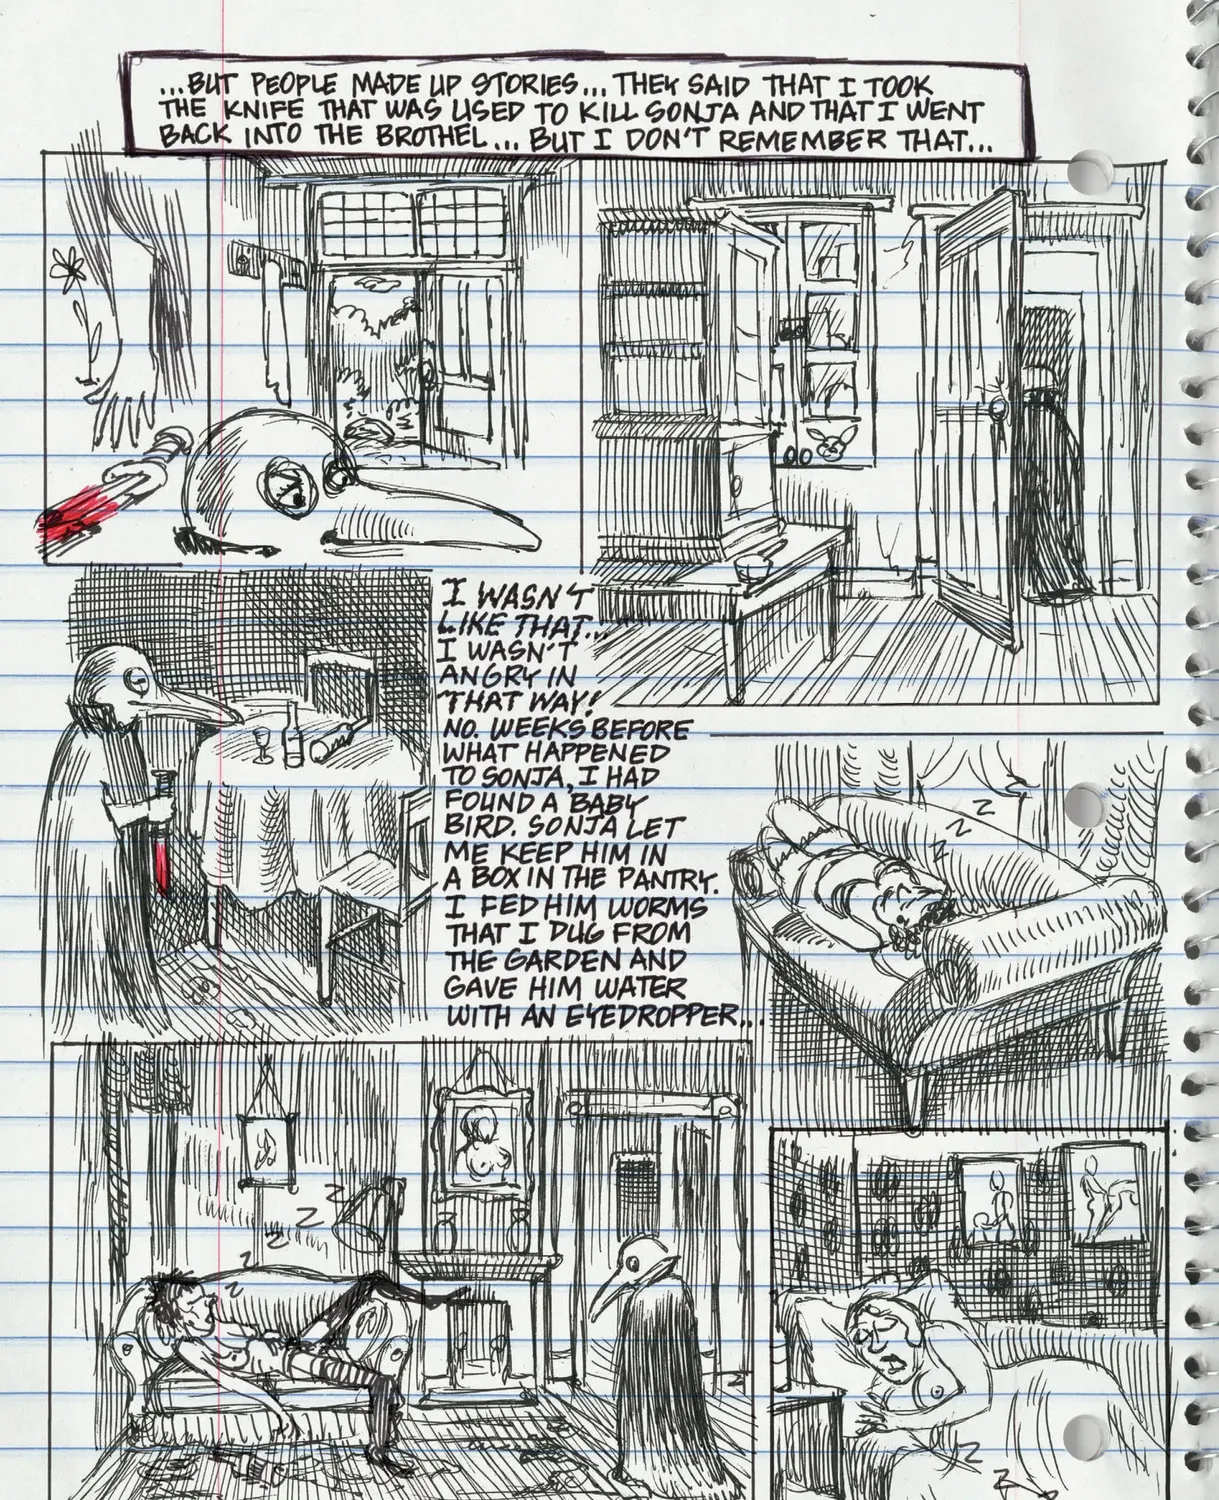 ...BUT PEOPLE MADE UP STORIES... THEY SAID THAT I TOOK
THE KNIFE THAT WAS USED TO KILL SONJA AND THAT I WENT
BACK INTO THE BROTHEL... BUT I DON'T REMEMBER THAT...
I WASN'T
LIKE THAT...
I WASN'T
ANGRY IN
THAT WAY!
NO. WEEKS BEFORE
WHAT HAPPENED
TO SONJA, I HAD
FOUND A BABY
BIRD. SONJA LET
ME KEEP HIM IN
A BOX IN THE PANTRY.
I FED HIM WORMS
THAT I DUG FROM
THE GARDEN AND
GAVE HIM WATER
WITH AN EYEDROPPER...
Z
Z
Z
Z
Z
Z
Z
Z
Z